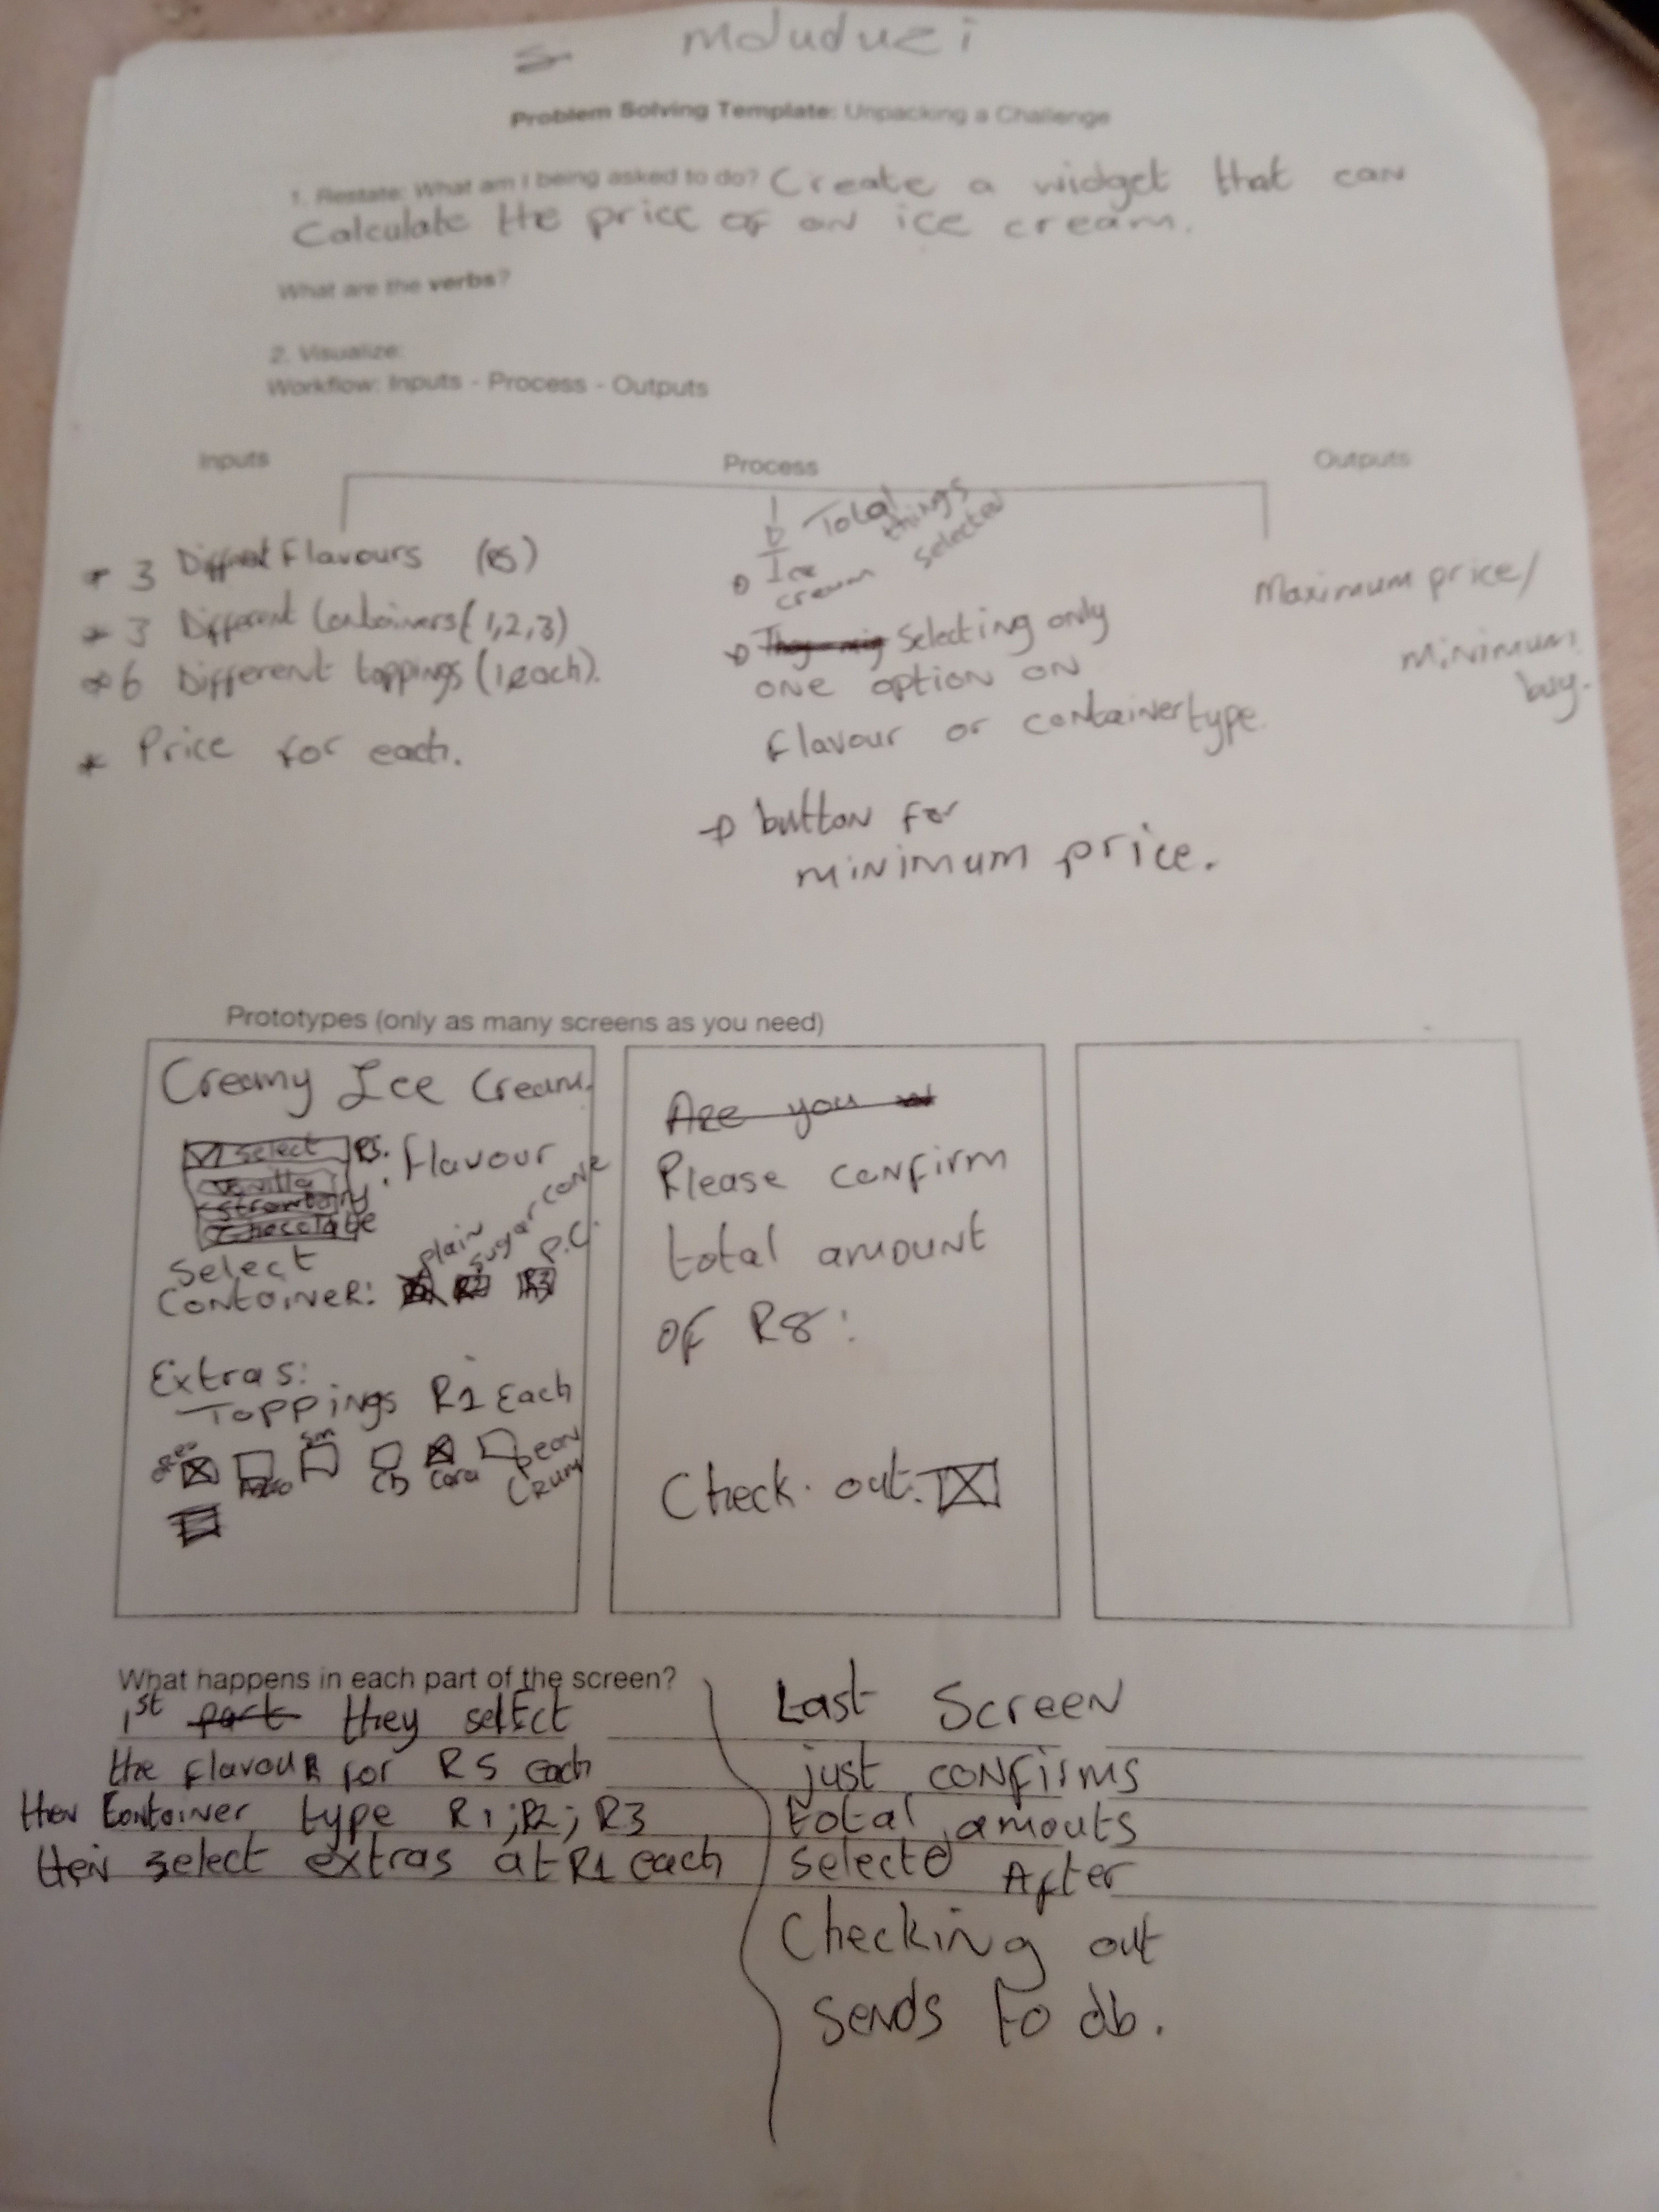 mduduzi
Problem Solving Template: Unpacking a Challenge
1. Restate: What am I being asked to do? Create a widget that can
Calculate the price of an ice cream.
What are the verbs?
2. Visualize:
Workflow: Inputs - Process - Outputs
Inputs
* 3 Different Flavours (R5)
* 3 Different Containers (1,2,3)
* 6 Different toppings (1 each).
* Price for each.
Process
Total things selected
Ice cream
Selecting only
one option on
flavour or container type.
button for
minimum price.
Outputs
Maximum price/
minimum
buy.
Prototypes (only as many screens as you need)
Creamy Ice Cream.
Select R5. flavour
Vanilla
Strawberry
Chocolate
Select
Container: plain sugar cone P.C.
R2 R3
Extras:
Toppings R1 Each
oreo
sm
Cb Cara pean
Crum
Are you
Please confirm
total amount
of R8:
Check out:
What happens in each part of the screen?
1st part they select
the flavour for R5 each
then Container type R1; R2; R3
then select extras at R1 each
Last Screen
just confirms
total amouts
selecte After
Checking out
sends to db.